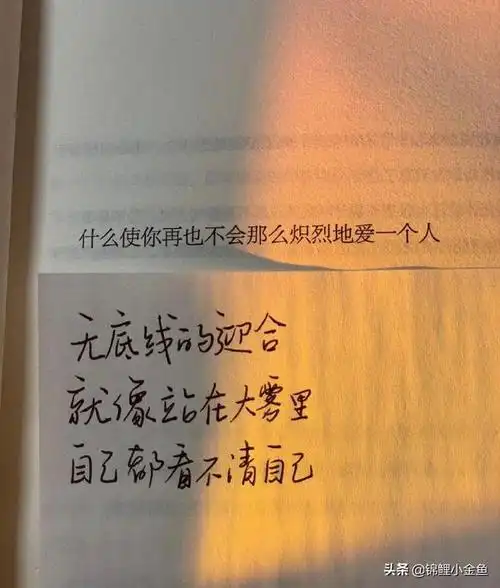 什么使你再也不会那么炽烈地爱一个人
无底线的迎合
就像站在大雾里
自己都看不清自己
头条 @锦鲤小金鱼